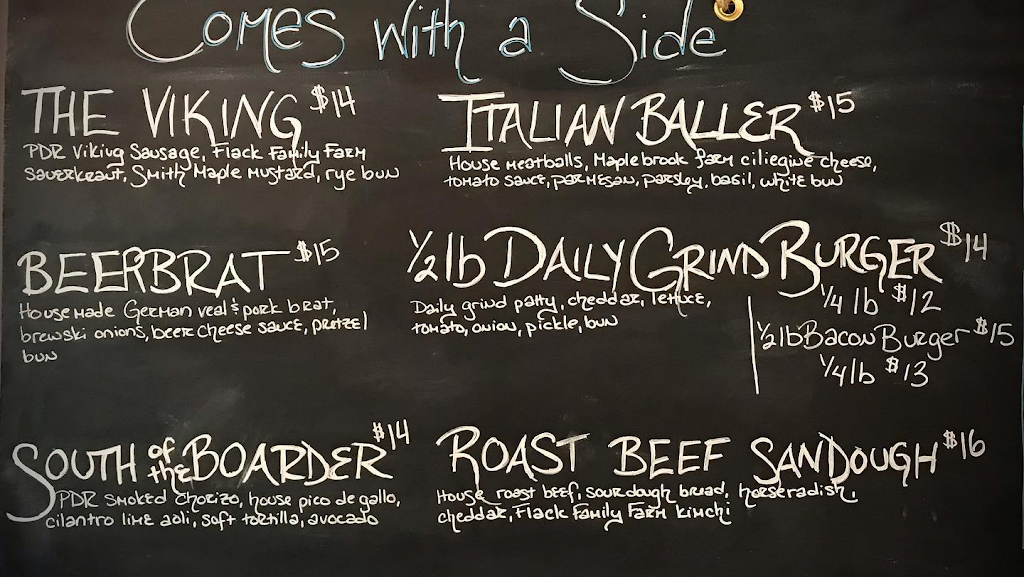 Comes with a Side
THE VIKING $14
PDR Viking Sausage, Flack Family Farm
Sauerkraut, Smith Maple Mustard, rye bun
ITALIAN BALLER $15
House meatballs, Maplebrook farm ciliegine cheese,
tomato sauce, parmesan, parsley, basil, white bun
BEERBRAT $15
House made German veal & pork brat,
brewski onions, beer cheese sauce, pretzel
bun
1/2 lb DAILY GRIND BURGER $14
Daily grind patty, cheddar, lettuce,
tomato, onion, pickle, bun
1/4 lb $12
1/2 lb Bacon Burger $15
1/4 lb $13
SOUTH of the BOARDER $14
PDR Smoked Chorizo, house pico de gallo,
cilantro lime aoli, soft tortilla, avocado
ROAST BEEF SANDOUGH $16
House roast beef, sour dough bread, horseradish,
cheddar, Flack Family Farm kimchi